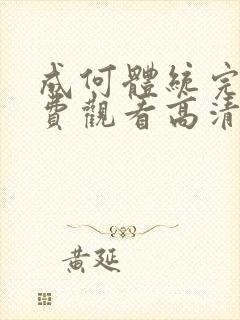 成何體統完
費觀看高清
黃延